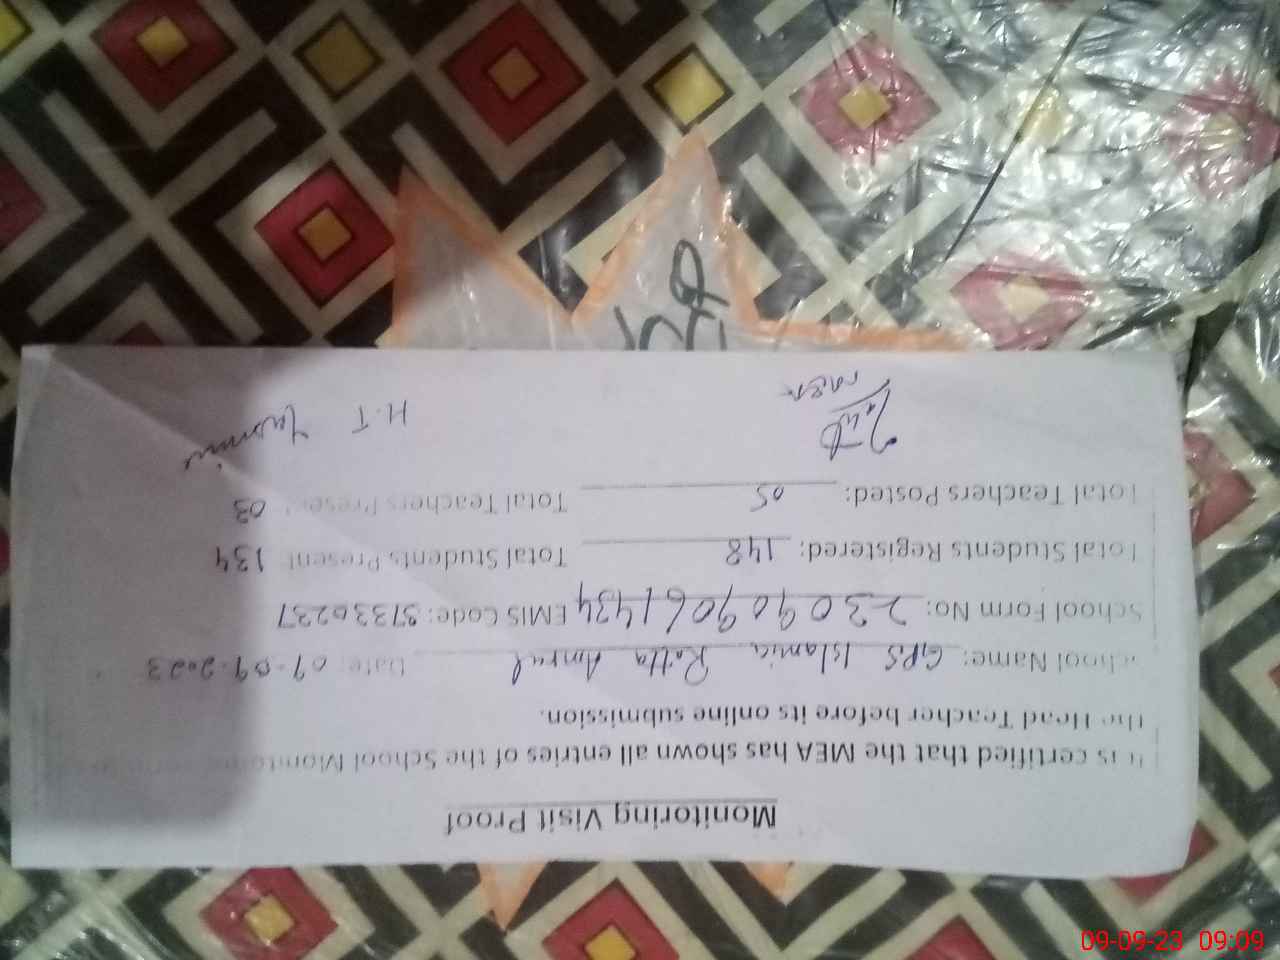 Monitoring Visit Proof
It is certified that the MEA has shown all entries of the School Monitoring Form to
the Head Teacher before its online submission.
School Name: GPS Islamia Ratta Amral Date: 09-09-2023
School Form No: 230909061434 EMIS Code: 37330237
Total Students Registered: 148 Total Students Present 134
Total Teachers Posted: 05 Total Teachers Present 03
MEA H.T
09-09-23 09:09